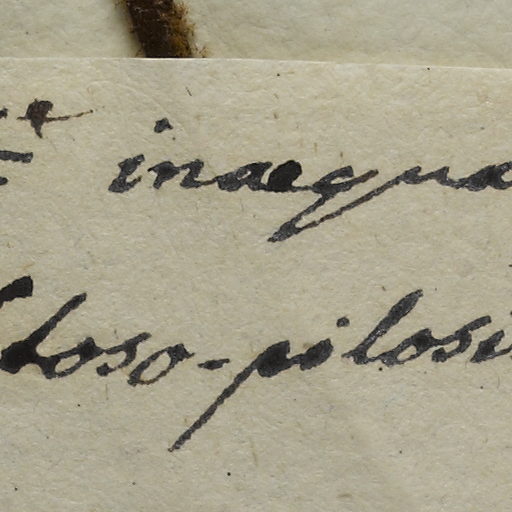 inaequa
loso-pilosi